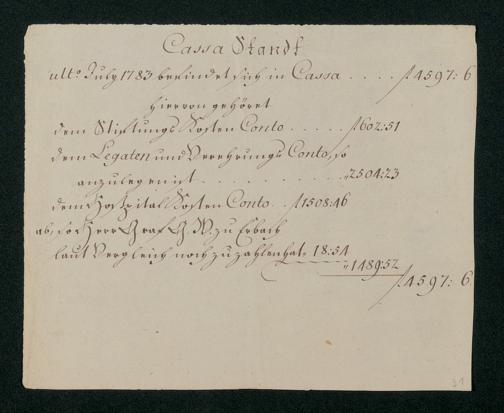 Cassa Standt
ulto July 1783 befindet sich in Cassa . . . . f 4597: 6
hiervon gehöret
dem Stiftungs Kosten Conto . . . . . f 602:51
dem Legaten und Verehrungs Conto, so
anzulegen ist . . . . . . . . . . . . „ 2504:23
dem Hospital Kosten Conto . f 1508:46
ab, so Herr Graf G. W. zu Erbach
laut Vergleich noch zu zahlen hat „ 18:54
„ 1489:52
f 4597: 6
31